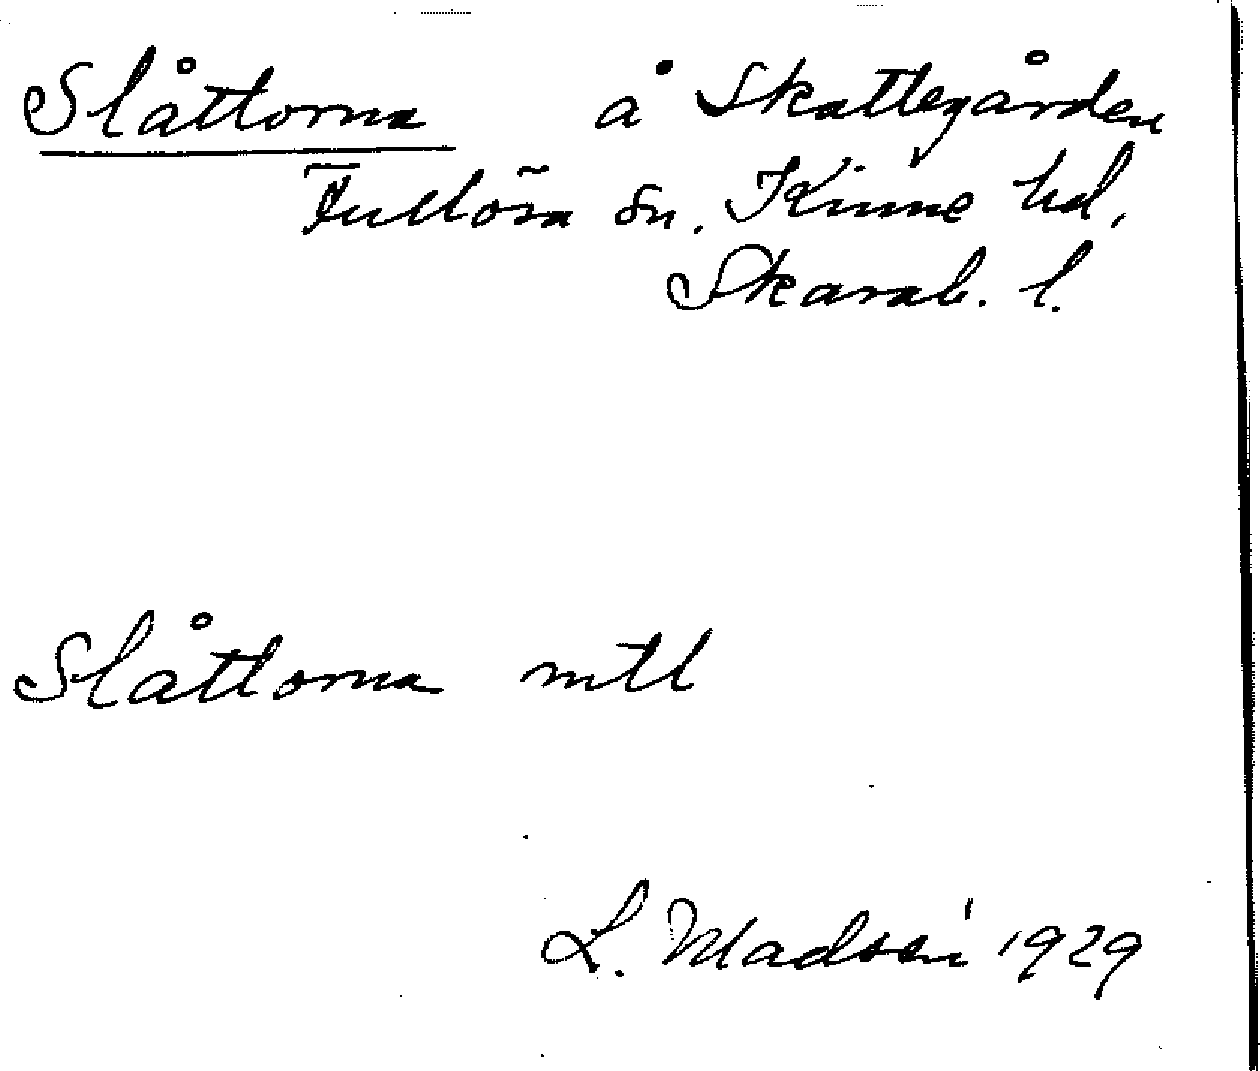 Slåttorna å Skattegården
Fullösa sn. Kinne hd.
Skarab. l.
Slåttorna mtl
L. Madsén 1929